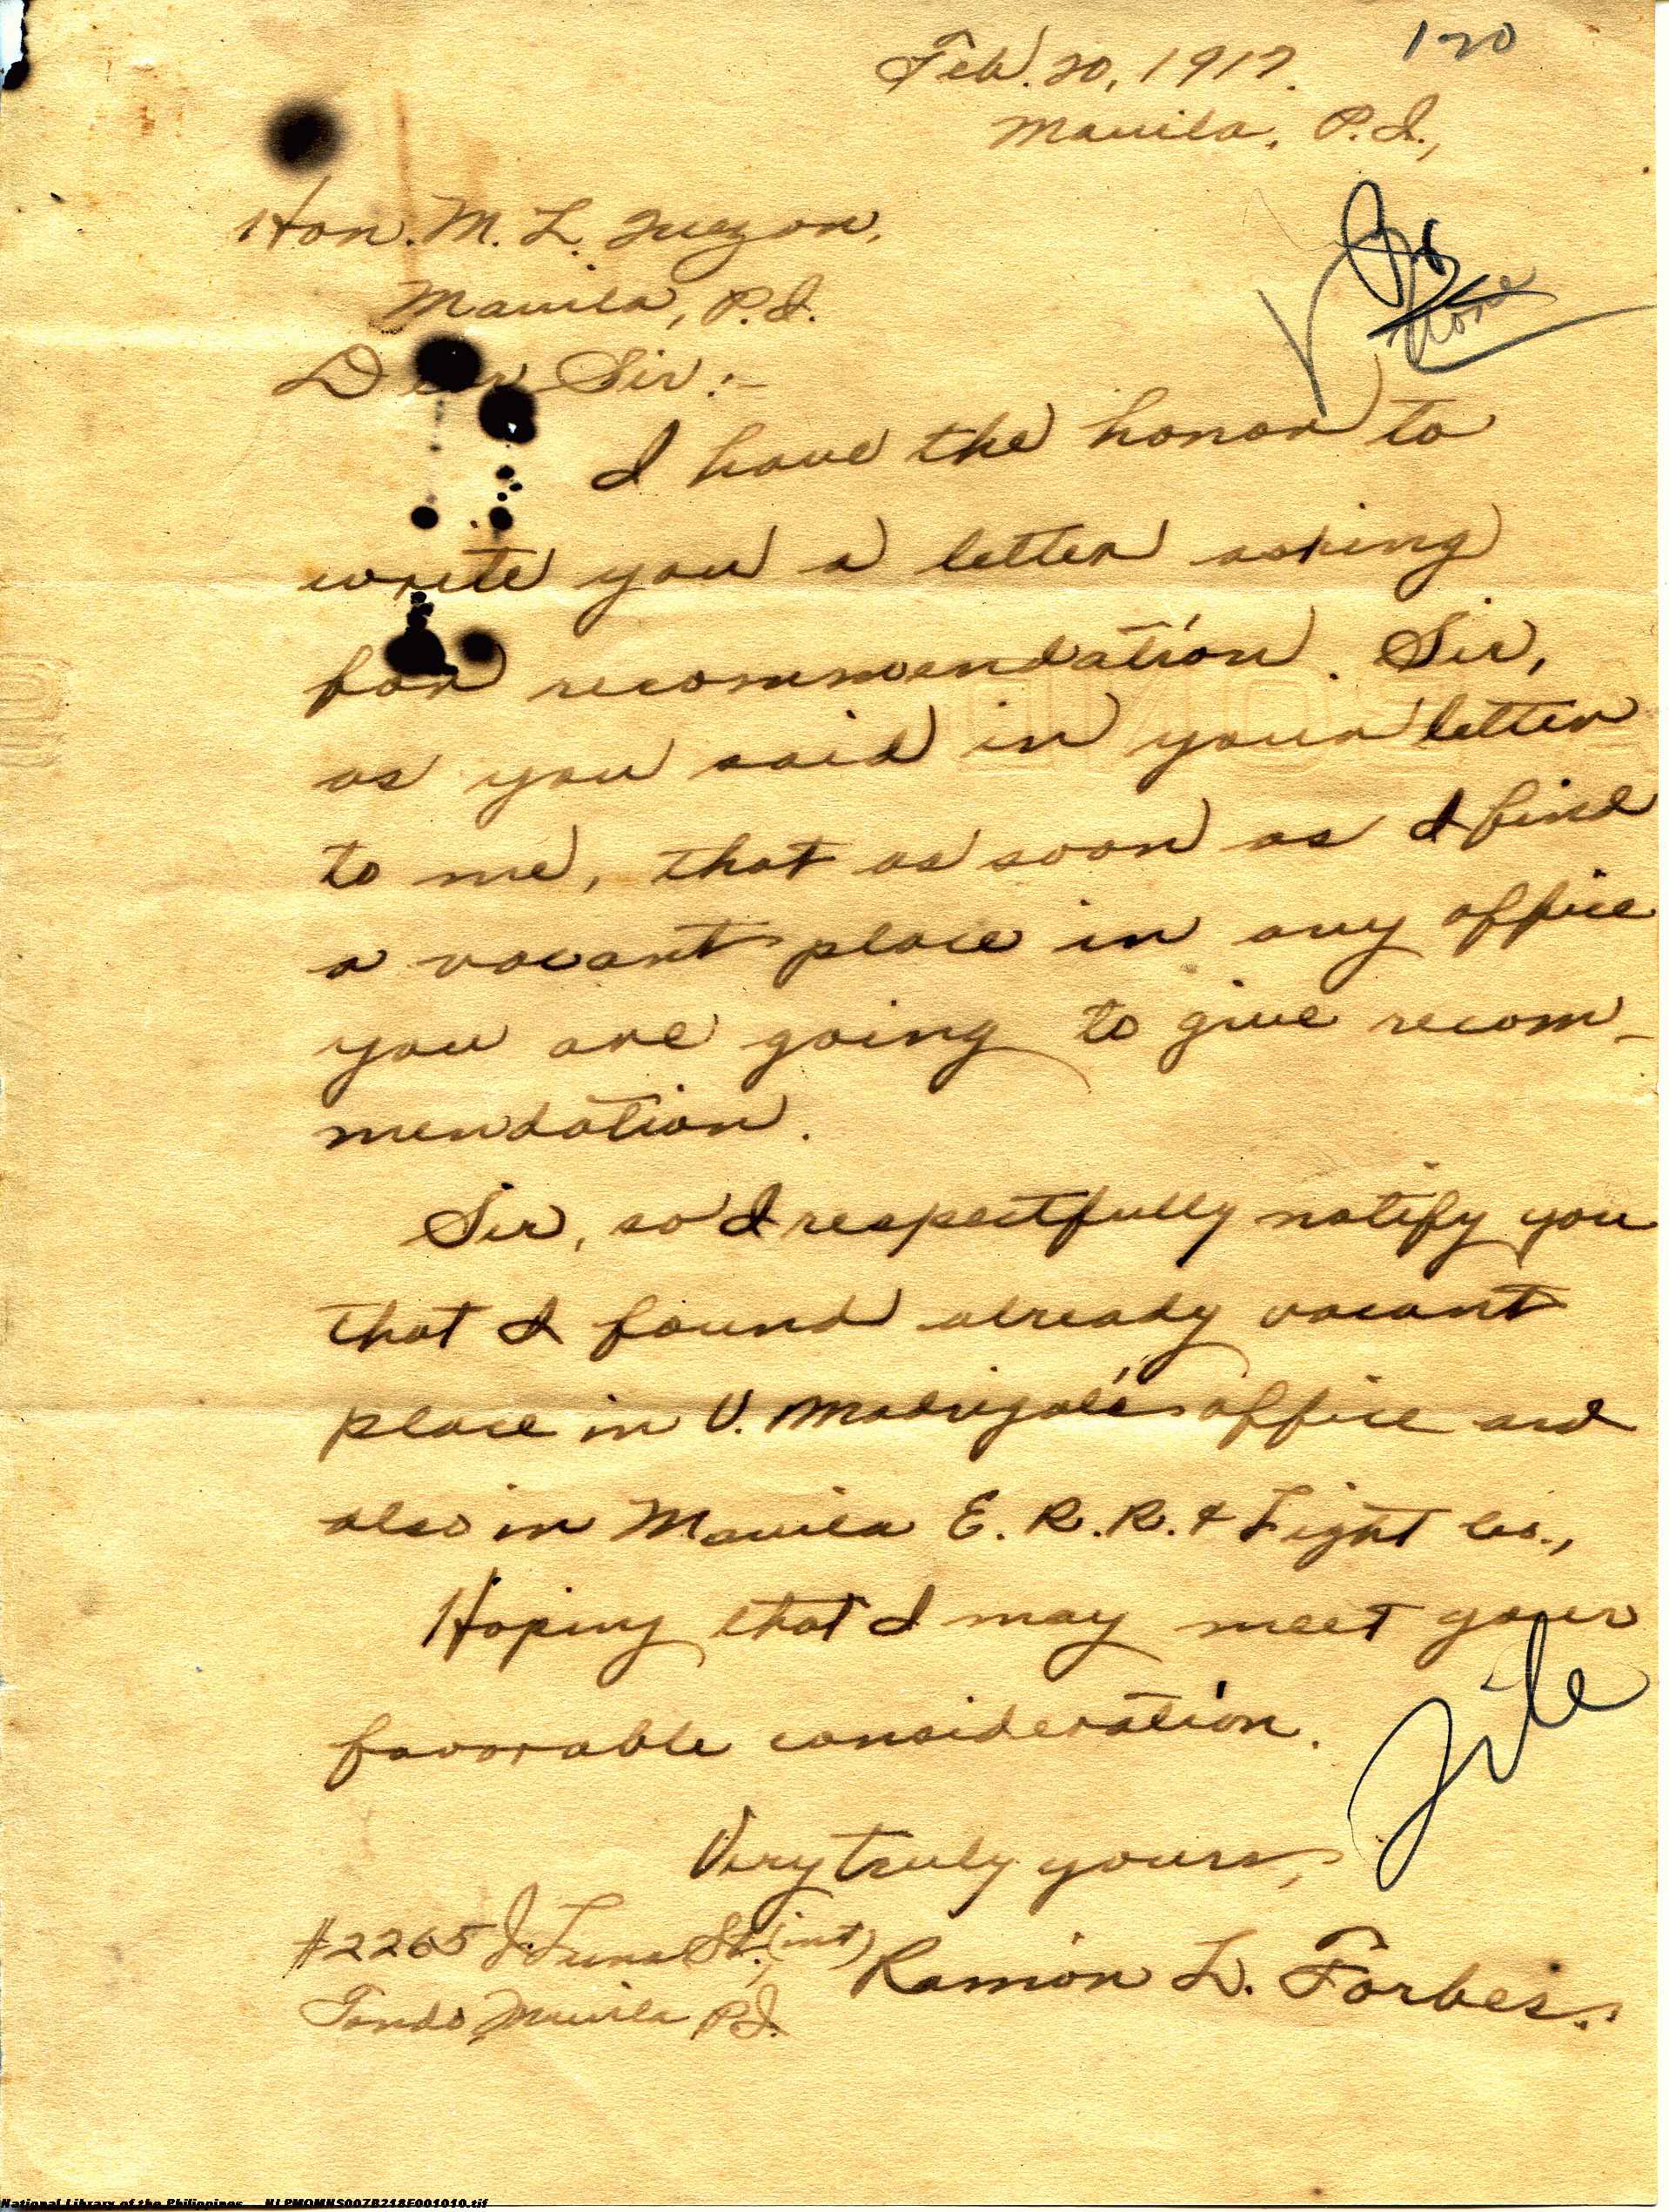 120
Feb. 20, 1917.
Manila, P.I.,
Hon. M. L. Quezon,
Manila, P.I.
Dear Sir:-
I have the honor to
write you a letter asking
for recommendation. Sir,
as you said in your letter
to me, that as soon as I find
a vacant place in any office
you are going to give recom-
mendation.
Sir, so I respectfully notify you
that I found already vacant
place in V. Madrigal's office and
also in Manila E. R. R. & Light Co.,
Hoping that I may meet your
favorable consideration.
File
Very truly yours,
#2265 J. Luna St., (int)
Tondo Manila P.I.
Ramón L. Forbes.
BOND
National Library of the Philippines